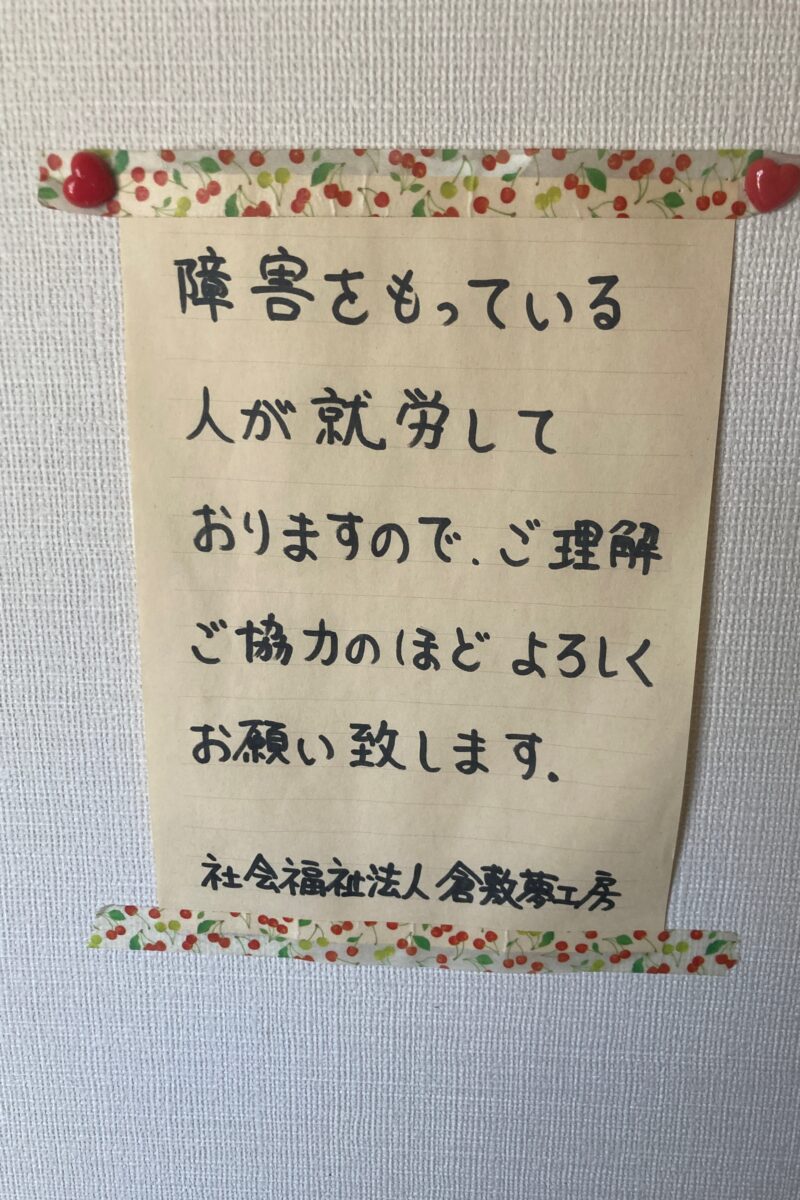 障害をもっている
人が就労して
おりますので、ご理解
ご協力のほど よろしく
お願い致します。
社会福祉法人 倉敷夢工房